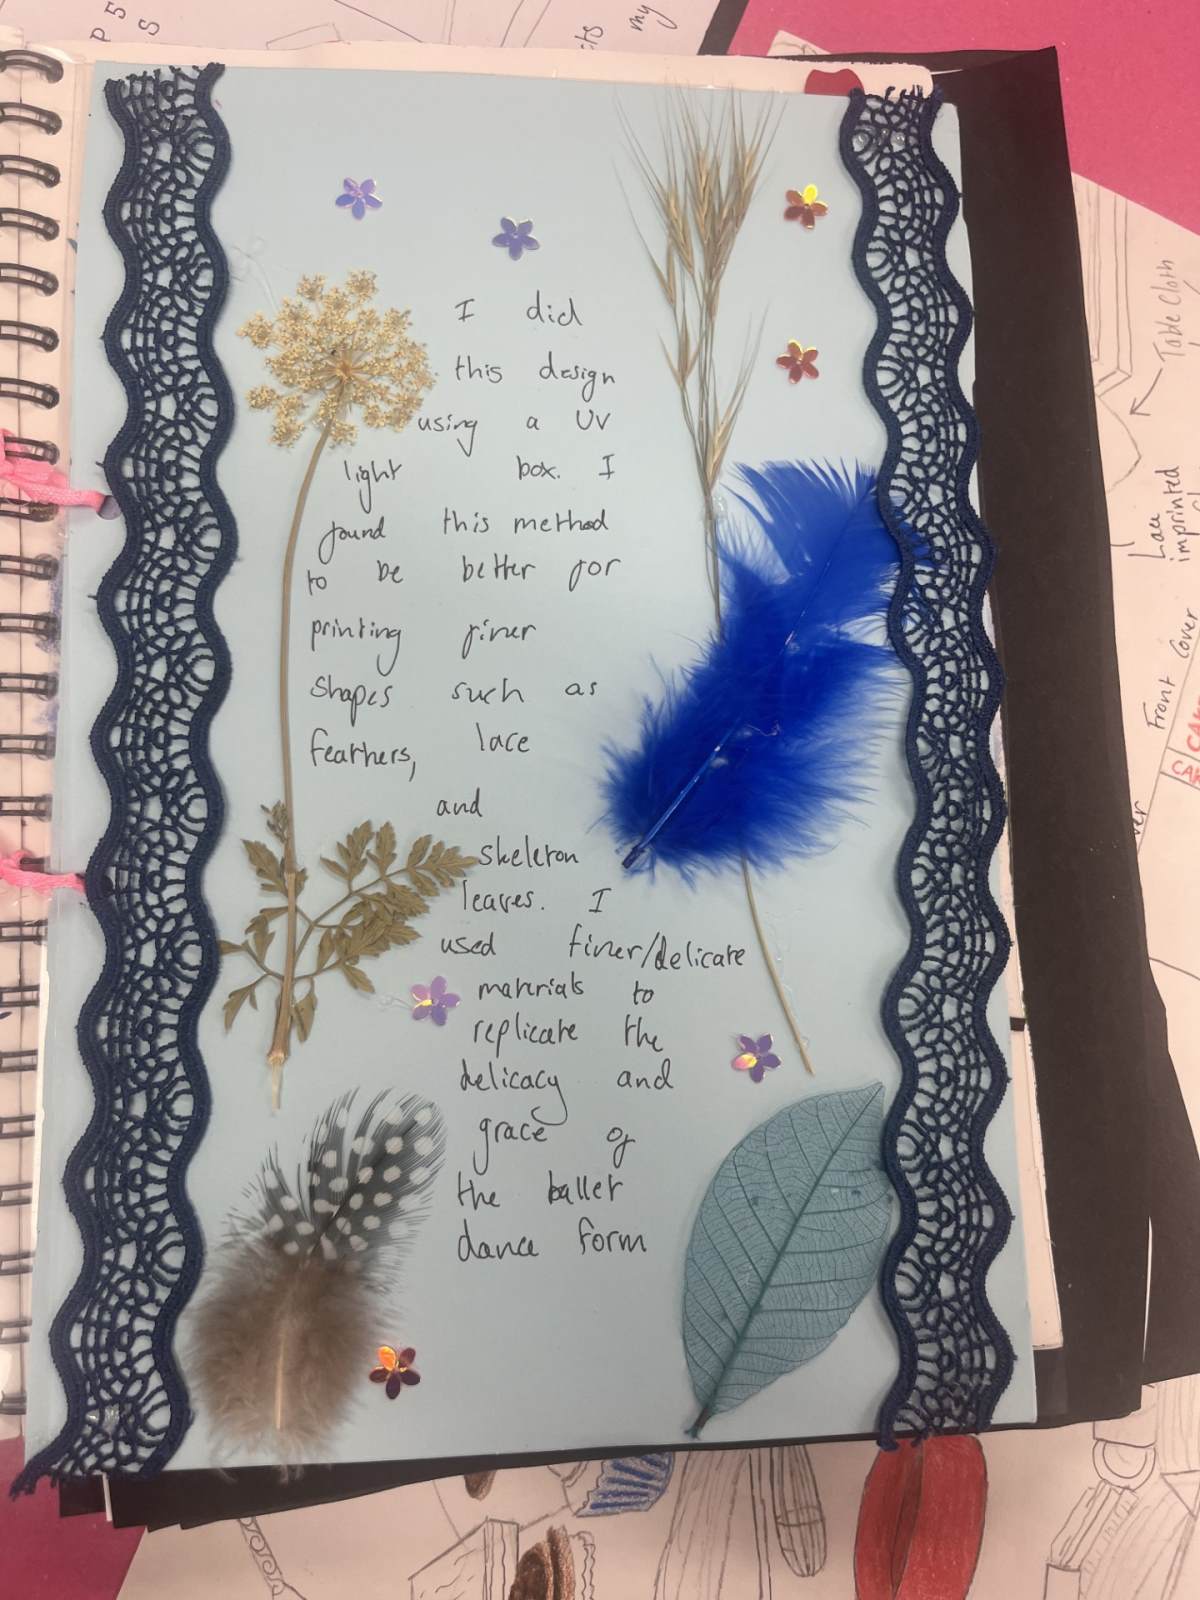 P 5
S
cts my
I did
this design
using a UV
light box. I
found this method
to be better for
printing finer
shapes such as
feathers, lace
and
skeleton
leaves. I
used finer/delicate
materials to
replicate the
delicacy and
grace of
the ballet
dance form
Table Cloth
Lace
imprinted
Front Cover